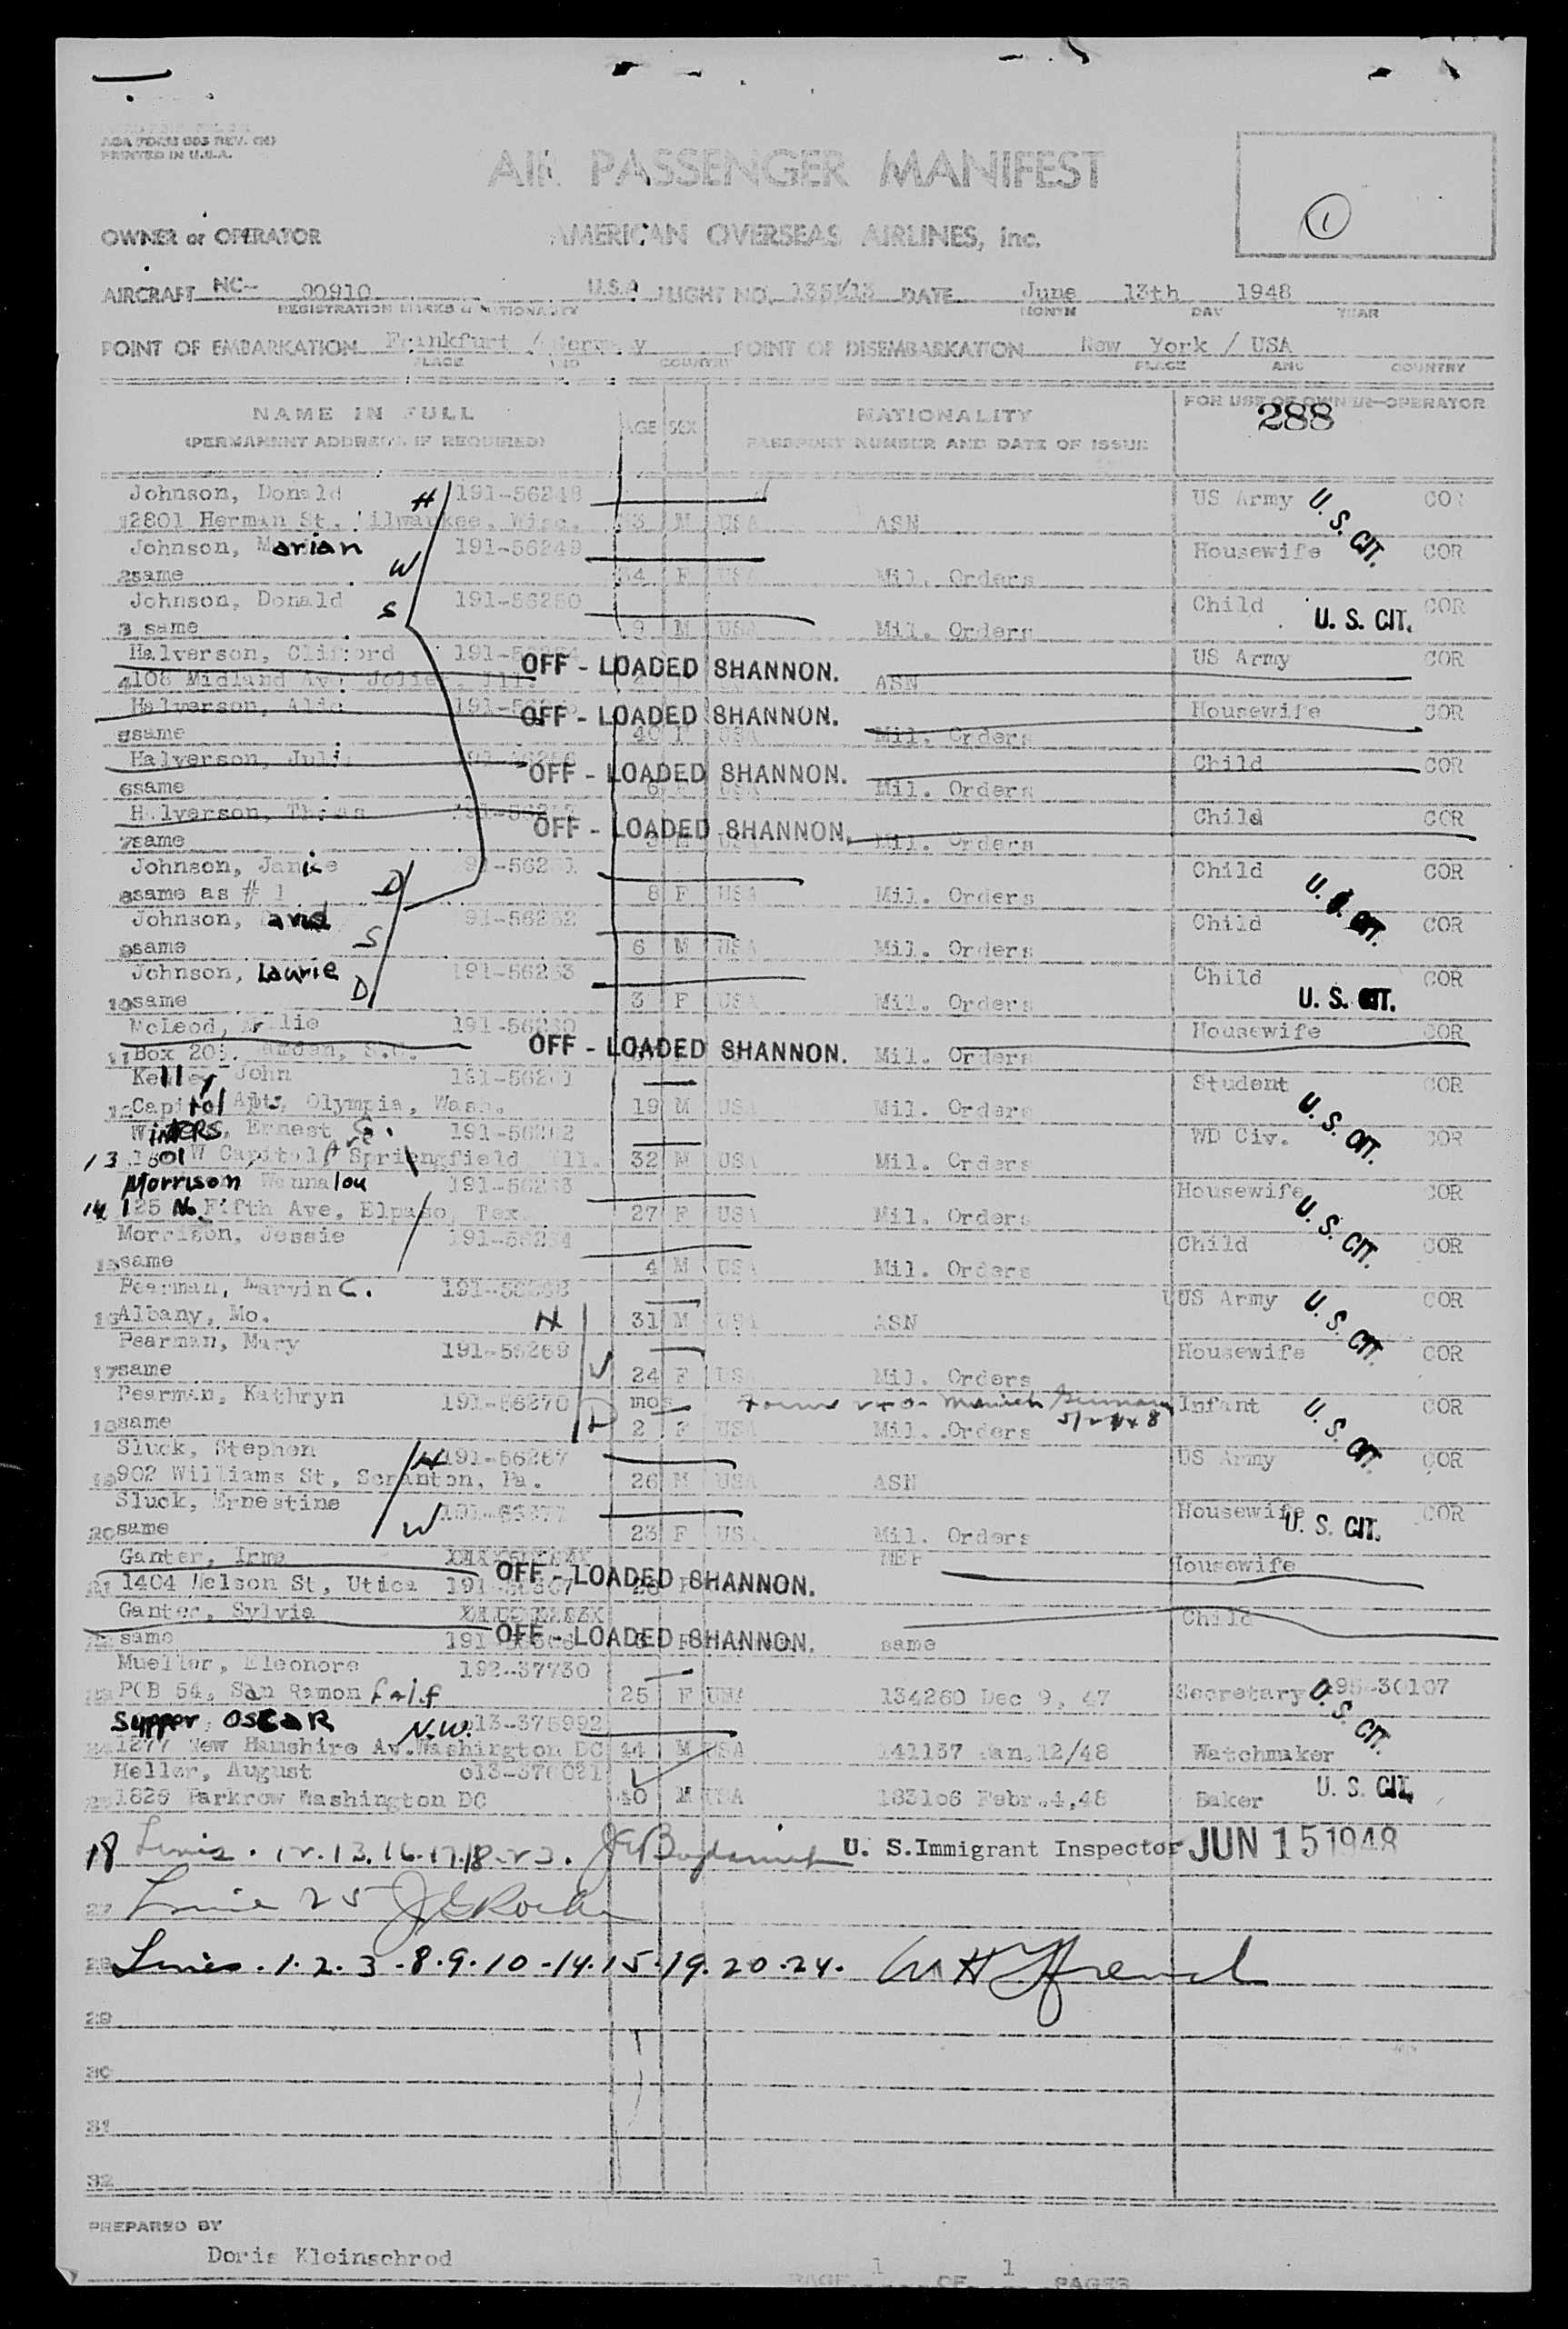 AOA FORM 003 REV. (N)
PRINTED IN U.S.A.
AIR PASSENGER MANIFEST
1
OWNER or OPERATOR AMERICAN OVERSEAS AIRLINES, Inc.
AIRCRAFT NC- 90910 U.S.A FLIGHT NO. DATE June 13th 1948
REGISTRATION MARKS & NATIONALITY MONTH DAY YEAR
POINT OF EMBARKATION Frankfurt / Germany POINT OF DISEMBARKATION New York / USA
PLACE AND COUNTRY PLACE AND COUNTRY
NAME IN FULL AGE SEX NATIONALITY FOR USE OF OWNER-OPERATOR
(PERMANENT ADDRESS IF REQUIRED) PASSPORT NUMBER AND DATE OF ISSUE 288
Johnson, Donald H 191-56248 US Army U. S. CIT. COR
2801 Herman St. Milwaukee, Wisc. M USA ASN
Johnson, Marian W 191-56249 Housewife COR
2 same F USA Mil. Orders
Johnson, Donald S 191-56250 Child U. S. CIT. COR
3 same 9 M USA Mil. Orders
Halverson, Clifford OFF - LOADED SHANNON. US Army COR
4 108 Midland Av. Joliet, Ill. ASN
Halverson, OFF - LOADED SHANNON. Housewife COR
5 same 40 F USA Mil. Orders
Halverson, OFF - LOADED SHANNON. Child COR
6 same 6 Mil. Orders
Halverson, Thomas OFF - LOADED SHANNON. Child COR
7 same M USA Mil. Orders
Johnson, Janice D Child COR
8 same as # 1 8 F USA Mil. Orders U. S. CIT.
Johnson, David S Child COR
9 same 6 M USA Mil. Orders
Johnson, Laurie D Child COR
10 same 3 F USA Mil. Orders U. S. CIT.
McLeod, 191-56260 Housewife COR
11 Box 205. Camden, S.C. OFF - LOADED SHANNON. Mil. Orders
Kelley John Student COR
12 Capitol Apts, Olympia, Wash. 19 M USA Mil. Orders U. S. CIT.
WINTERS, Ernest 191-56262 WD Civ. COR
13 1501 W Capitol Springfield Ill. 32 M USA Mil. Orders
Morrison Wannalou Housewife COR
14 125 No. Fifth Ave, Elpaso, Tex. 27 F USA Mil. Orders U. S. CIT.
Morrison, Jessie Child COR
15 same 4 M USA Mil. Orders
Pearman, Marvin C. US Army COR
16 Albany, Mo. H 31 M USA ASN U. S. CIT.
Pearman, Mary 191-56269 Housewife COR
17 same W 24 F USA Mil. Orders
Pearman, Kathryn 191-56270 mos Munich Germany Infant COR
18 same D 2 F USA Mil. Orders U. S. CIT.
Sluck, Stephen H 191-56267 US Army COR
19 902 Williams St, Scranton, Pa. 26 M USA ASN
Sluck, Ernestine Housewife COR
20 same W 23 F USA Mil. Orders U. S. CIT.
Ganter, Irma Housewife
21 1404 Nelson St, Utica OFF - LOADED SHANNON.
Ganter, Sylvia Child
22 same OFF - LOADED SHANNON. same
Mueller, Eleonore 192-37730
23 POB 54, San Ramon Calif 25 F USA 134260 Dec 9, 47 Secretary U. S. CIT.
Supper, OSCAR 013-375992
24 1277 New Hamshire Av. N.W. Washington DC 44 M USA Jan.12/48 Watchmaker
Heller, August
25 1826 Parkrow Washington DC 40 M USA 183106 Febr.4,48 Baker U. S. CIT.
18 Lines . 12. 13. 16. 17. 18. 23. U. S.Immigrant Inspector JUN 15 1948
27 Line 25
28 Lines . 1. 2. 3 . 8. 9. 10 - 14. 15. 19. 20. 24.
29
30
31
32
PREPARED BY
Doris Kleinschrod
PAGE 1 OF 1 PAGES